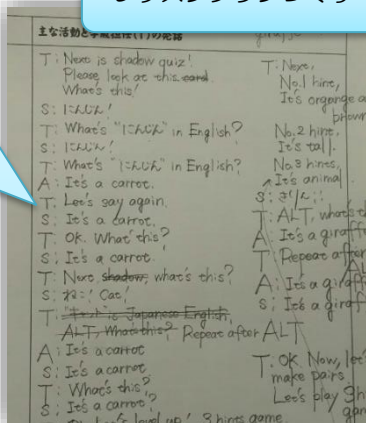 主な活動と学級担任(T)の発話
T: Next is shadow quiz!
Please look at this card.
What's this!
S: にんじん!
T: What's "にんじん" in English?
S: にんじん!
T: What's "にんじん" in English?
A: It's a carrot.
T: Let's say again.
S: It's a carrot.
T: OK. What' this?
S: It's a carrot.
T: Next, shadow, what's this?
S: ねこ! Cat!
T: "キャット" is Japanese English.
ALT, What's this? Repeat after ALT
A: It's a carrot
S: It's a carrot
T: What's this?
S: It's a carrot!
3 hints game
T: Next,
No.1 hint,
It's organge a
brown
No.2 hint,
It's tall.
No.3 hints,
It's animal
S: きりん!!
T: ALT, what's th
A: It's a giraffe
T: Repeat after
A: It's a giraff
S: It's a giraf
T: OK. Now, let'
make pairs.
Let's play 3h
gam